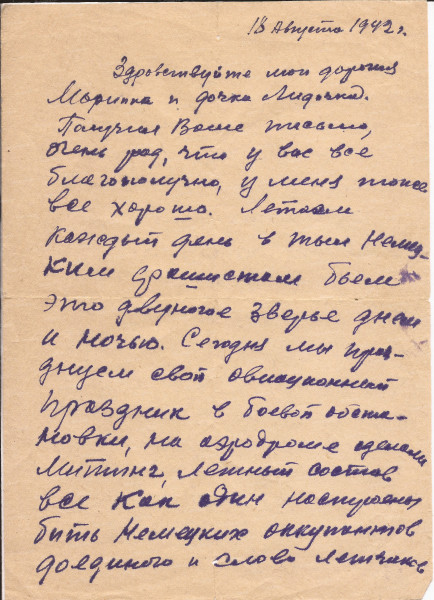 18 Августа 1942 г.
Здравствуйте мои дорогия
Маринка и дочка Лидочка.
Получил Ваше письмо,
очень рад, что у вас все
благополучно, у меня тоже
все хорошо. Летаем
каждый день в тыл Немец-
ким фашистам бьем
это двуногое зверье днем
и ночью. Сегодня мы праз-
днуем свой авиационный
праздник в боевой обста-
новки, на аэродроме сделали
Митинг, летный состав
все как один настроены
бить Немецких оккупантов
доединого и слово летчиков